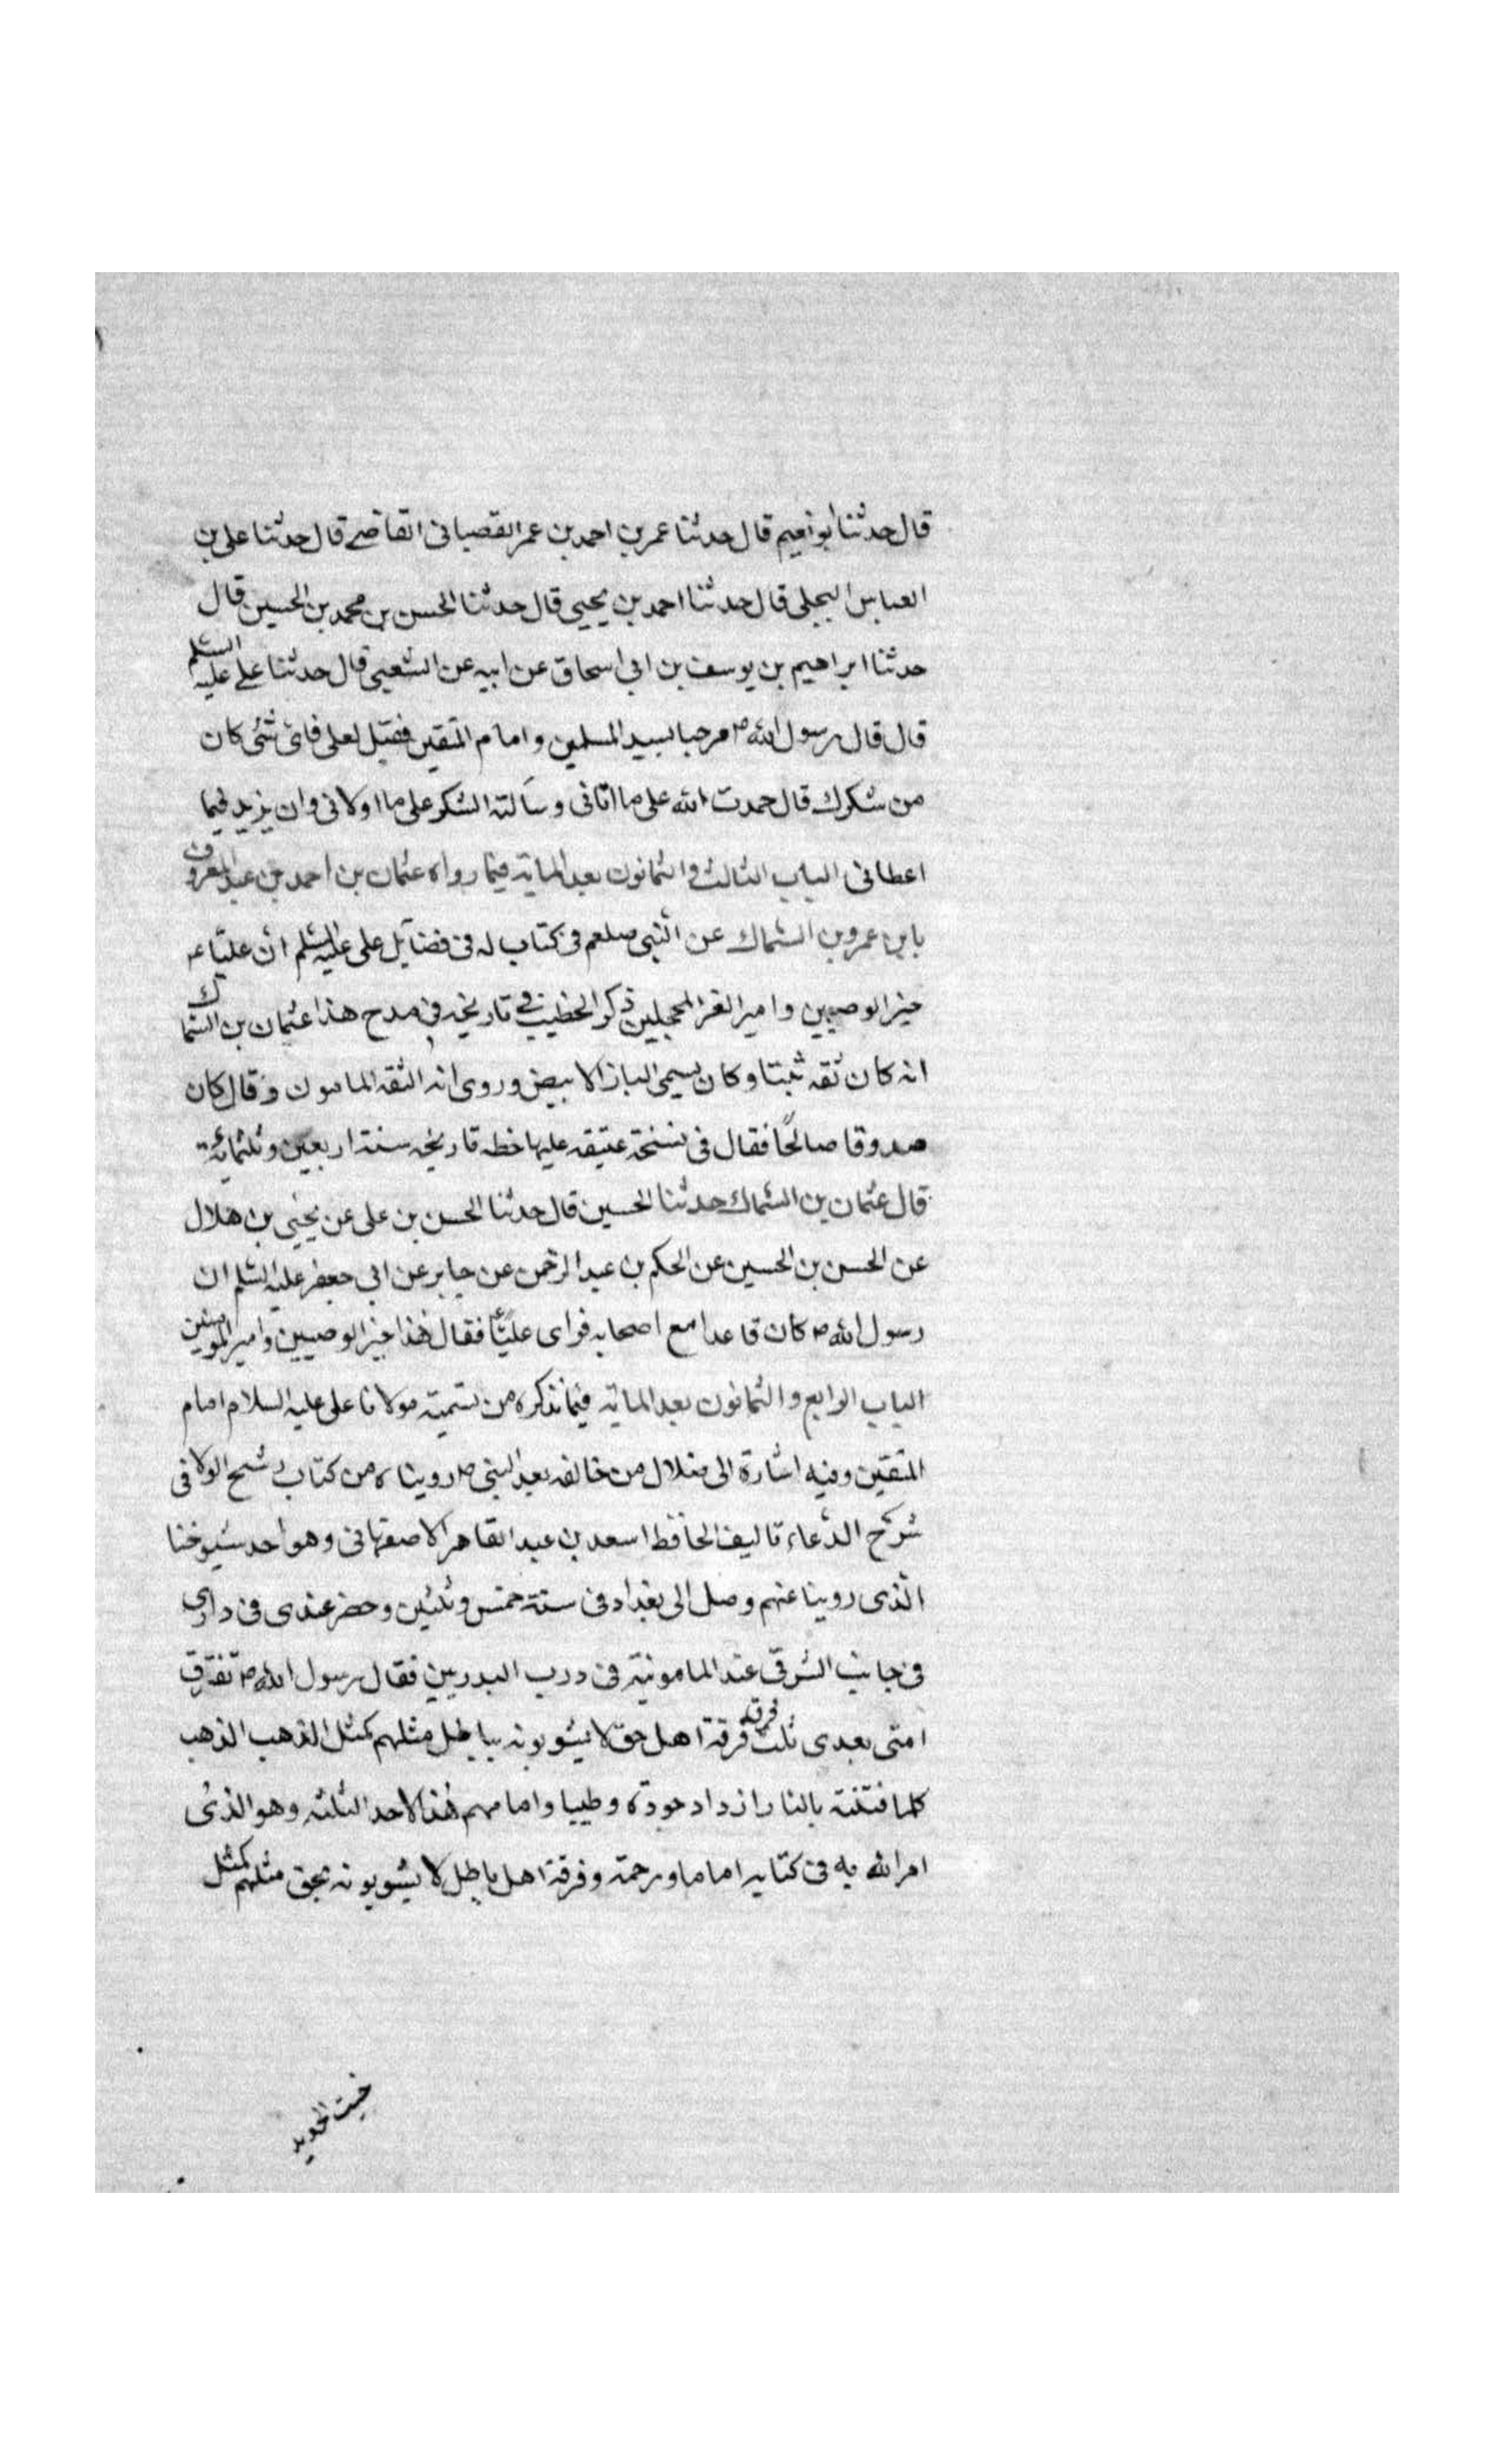 قال حدثنا ابو نعيم قال حدثنا عمر بن احمد بن عمر القصبانى القاضے قال حدثنا على بن
العباس البجلى قال حدثنا احمد بن يحيى قال حدثنا الحسن بن محمد بن الحسين قال
حدثنا ابراهيم بن يوسف بن ابى اسحاق عن ابيه عن الشعبى قال حدثنا على عليه السلم
قال قال رسول الله ص مرحبا بسيد المسلمين وامام المتقين فقيل لعلى فاى شئى كان
من شكرك قال حمدت الله على ما اتانى وسالته الشكر على ما اولانى وان يزيد فيما
اعطانى الباب الثالث والثمانون بعد الماية فيما رواه عثمان بن احمد بن عبد المعروف
بابن عمرو بن السماك عن النبى صلعم فى كتاب له فى فضايل على عليه السلم ان عليا ع
خير الوصيين وامير الغر المحجلين ذكر الخطيب فى تاريخه فى مدح هذا عثمان بن السماك
انه كان ثقه ثبتا وكان يسمى الباز الابيض وروى انه الثقه المامون وقال كان
صدوقا صالحا فقال فى نسخة عتيقه عليها خطه تاريخه سنة اربعين وثلثمائة
قال عثمان بن السماك حدثنا الحسين قال حدثنا الحسن بن على عن يحيى بن هلال
عن الحسن بن الحسين عن الحكم بن عبد الرحمن عن جابر عن ابى جعفر عليه السلم ان
رسول الله ص كان قاعدا مع اصحابه فراى عليا ع فقال هذا خير الوصيين وامير المومنين
الباب الرابع والثمانون بعد الماية فيما نذكره من تسمية مولانا على عليه السلام امام
المتقين وفيه اشارة الى ضلال من خالفه بعد النبى ص روينا ه من كتاب رشح الولا فى
شرح الدعاء تاليف الحافظ اسعد بن عبد القاهر الاصفهانى وهو احد شيوخنا
الذى روينا عنهم وصل الى بغداد فى سنة خمس وثلثين وحضر عندى فى دارى
فى جانب الشرقى عند المامونية فى درب البدريين فقال رسول الله ص تفترق
امتى بعدى ثلث فرقه فرقة اهل حق لا يشوبونه بباطل مثلهم كمثل الذهب الذهب
كلما فتنته بالنار ازداد جودة وطيبا وامامهم هذا لاحد الثلثه وهو الذى
امر الله به فى كتابه اماما ورحمة وفرقة اهل باطل لا يشوبونه بحق مثلهم كمثل
خبث الحديد